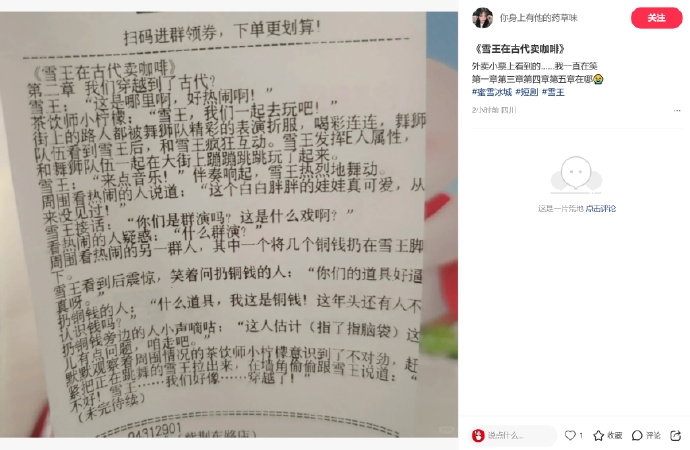 扫码进群领券，下单更划算！
《雪王在古代卖咖啡》
第二章 我们穿越到了古代？
雪王：“这是哪里啊，好热闹啊！”
茶饮师小柠檬：“雪王，我们一起去玩吧！”
街上的路人都被舞狮队精彩的表演折服，喝彩连连，舞狮
队伍看到雪王后，和雪王疯狂互动。雪王发挥E人属性，
和舞狮队伍一起在大街上蹦蹦跳跳玩了起来。
雪王：“来点音乐！”伴奏响起，雪王热烈地舞动。
周围看热闹的人说道：“这个白白胖胖的娃娃真可爱，从
来没见过！”
雪王接话：“你们是群演吗？这是什么戏啊？”
看热闹的人疑惑：“什么群演？”
周围看热闹的另一群人，其中一个将几个铜钱扔在雪王脚
下。
雪王看到后震惊，笑着问扔铜钱的人：“你们的道具好逼
真呀。”
扔铜钱的人：“什么道具，我这是铜钱！这年头还有人不
认识钱吗？”
扔铜钱旁边的人小声嘀咕：“这人估计（指了指脑袋）这
儿有点问题，咱走吧。”
默默观察着周围情况的茶饮师小柠檬意识到了不对劲，赶
紧把正在跳舞的雪王拉出来，在墙角偷偷跟雪王说道：“
不好！雪王……我们好像……穿越了！”
（未完待续）
04312901
你身上有他的药草味
关注
《雪王在古代卖咖啡》
外卖小票上看到的……我一直在笑
第一章第三章第四章第五章在哪😂
#蜜雪冰城 #短剧 #雪王
2小时前 四川
这是一片荒地 点击评论
说点什么...
1
收藏
评论